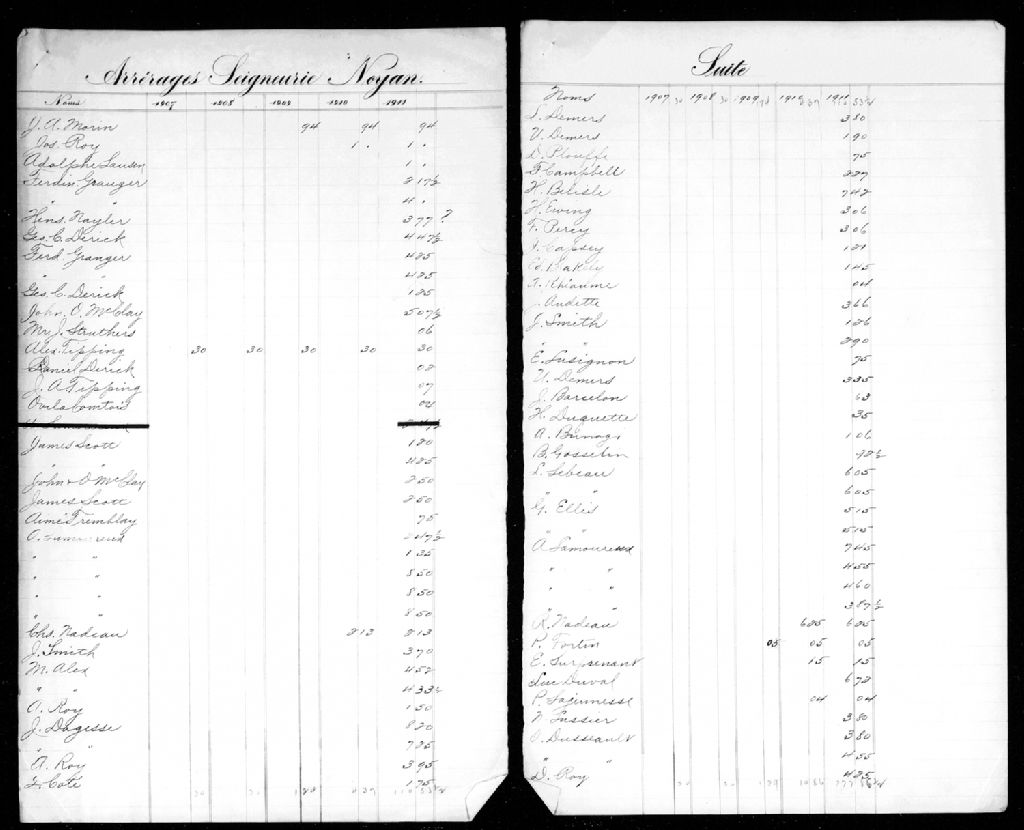 Arrérages Seigneurie Noyan.
Noms 1907 1908 1909 1910 1911
J. A. Morin 94 94 94
Jos. Roy 1 . 1 .
Adolphe 1 .
Ferdin. Granger 217½
" " 4 .
Hens. Naylor 377 ?
Geo. C. Derick 447½
Ferd. Granger 425
" " 425
Geo. C. Derick 125
John. O. McClay 507½
Mr J. Struthers 06
Alex. Tipping 30 30 30 30 30
Daniel Derick 02
J. A. Tipping 07
James Scott 120
" " 425
John & O McClay 250
James Scott 250
Aimé Tremblay 75
" " 125
" " 850
" " 850
" " 850
Chs. Nadeau 213 213
J. Smith 370
M. Alex 452
" " 433½
A. Roy 150
J. Dagesse 820
" " 725
A. Roy 395
F. Coté 175
Suite
Noms 1907 1908 1909 1910 1911
L. Demers 380
U. Demers 190
D. Plouffe 75
F. Campbell 227
H. Belisle 742
H. Ewing 306
F. Percy 306
145
A. Rhiaume 04
J. Audette 366
J. Smith 126
" " 290
E. Lusignon 75
U. Demers 335
J. Barselon 63
H. Duquette 35
A. 106
B. Gosselin 92½
L. Lebeau 605
" " 605
G. Ellis 515
" " 515
A Lamoureux 745
" " 455
" " 460
" " 387½
R. Nadeau 625 625
P. Fortin 05 05 05
E. Surprenant 15 15
Luc Duval 672
P. Lajeunesse 04 04
N. Lussier 380
O. Dusseault 380
" 455
D. Roy 425